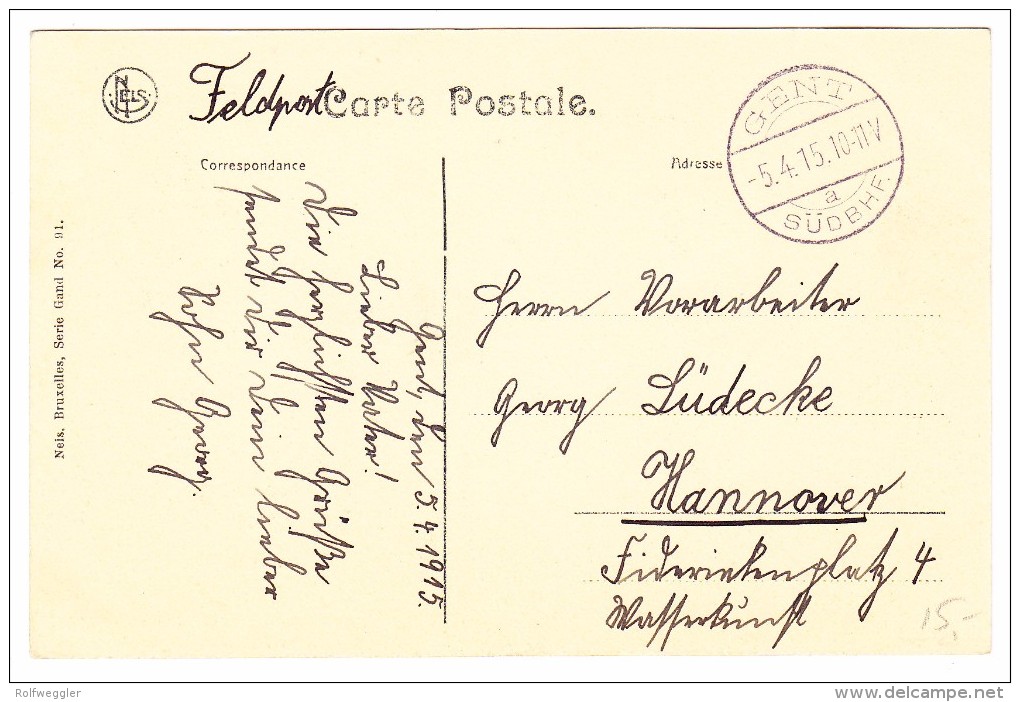 NELS
Feldpost
Carte Postale.
Correspondance
Adresse
GENT
-5.4.15.10-11V
a
SÜDBHF.
Gent, den 5.4.1915.
Lieber Vater!
Die herzlichsten Grüße
sendet Dir Dein lieber
Sohn Georg.
Herrn Vorarbeiter
Georg Lüdecke
Hannover
Friderikenplatz 4
Wasserkunst
15,-
Nels, Bruxelles, Serie Gand No. 91.
Rolfweggler
www.delcampe.net